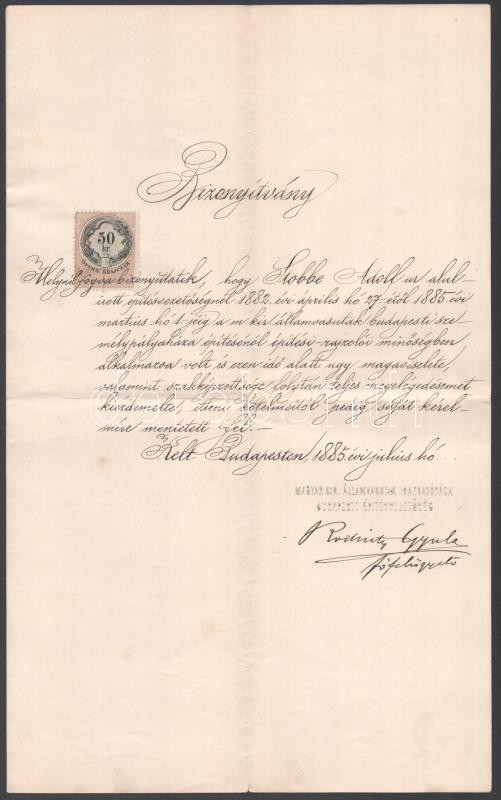 Bizonyítvány
50
kr.
Melynél fogva bizonyíttatik, hogy Stobbe Adolf ur alul-
irott épitésvezetőségnél 1882. évi április hó 27-étől 1885 évi
martius hó 1-jéig a m. kir. államvasutak budapesti sze-
mélypályaháza épitésénél épitési-rajzolói minőségben
alkalmazva volt és ezen idő alatt ugy magaviselete,
valamint szakképzettsége folytán teljes megelégedésemet
kiérdemelte, itteni kötelmeitől pedig saját kérel-
mére mentetett fel.-
Kelt Budapesten, 1885 évi julius hó
MAGYAR KIR. ÁLLAMVASUTAK IGAZGATÓSÁGA
Gyula
főfelügyelő